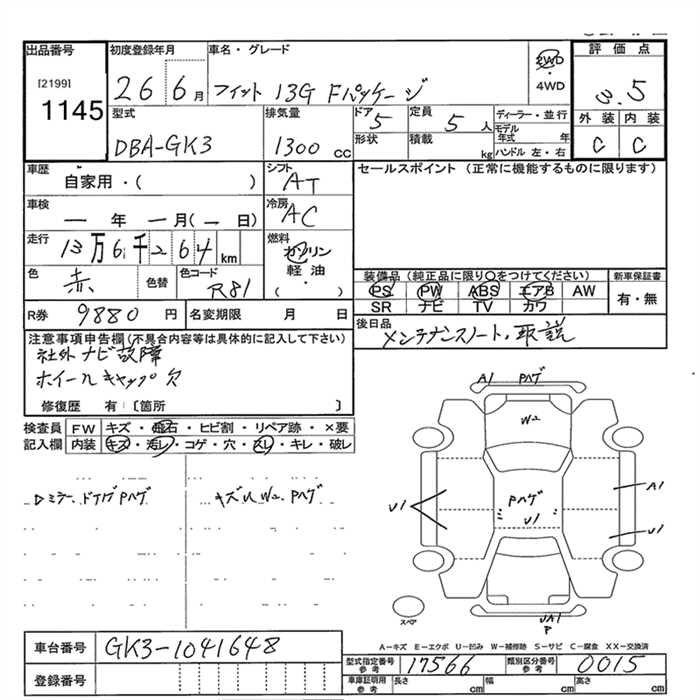 出品番号
[2199]
1145
初度登録年月
26 6月
車名・グレード
フィット 13G Fパッケージ
2WD
・
4WD
評価点
3.5
外装 内装
C C
型式
DBA-GK3
排気量
1300 cc
ドア 5
形状
定員 5 人
積載 kg
ディーラー・並行
モデル年式 年
ハンドル 左・右
車歴
自家用・( )
シフト
AT
車検
― 年 ― 月(― 日)
冷房
AC
走行
13万6千264 km
燃料
ガソリン
軽油・
( ・ )
色
赤
色替
色コード
R81
R券 9880 円
名変期限 月 日
セールスポイント (正常に機能するものに限ります)
装備品(純正品に限り○をつけてください)
PS PW ABS エアB AW
SR ナビ TV カワ
新車保証書
有・無
後日品
メンテナンスノート・取説
注意事項申告欄(不具合内容等は具体的に記入して下さい)
社外ナビ故障
ホイールキャップ欠
修復歴 有〔箇所 〕
検査員 FW キズ・飛石・ヒビ割・リペア跡・×要
記入欄 内装 キズ・汚レ・コゲ・穴・スレ・キレ・破レ
ミラー、ドアノブPハゲ
キズU W2、Pハゲ
A1 Pハゲ
W2
Pハゲ
U1
U1
A1
U1
UA1
P
スペア
A-キズ E-エクボ U-凹み W-補修跡 S-サビ C-腐食 XX-交換済
車台番号 GK3-1041648
登録番号
型式指定番号 参考 17566
類別区分番号 参考 0015
車庫証明用 参考 長さ cm 幅 cm 高さ cm